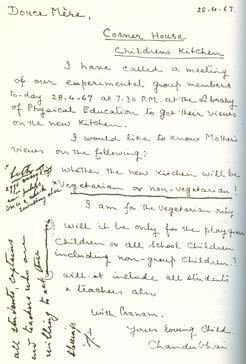 Douce Mère,
28-4-67.
Corner House
Childrens Kitchen
I have called a meeting
of our experimental group members
to-day 28.4-67 at 7-30 P.M. at the Library
of Physical Education to get their views
on the new Kitchen.
I would like to know Mother's
views on the following:-
whether the new Kitchen will be
Vegetarian or non-vegetarian?
I am for the Vegetarian only
will it be only for the playground
Children or all School Children
including non-group Children?
will it include all students
& teachers also
with Pranam.
Yours loving Child
Chandubhai
all students, captains
and teachers who are
willing to
blessings